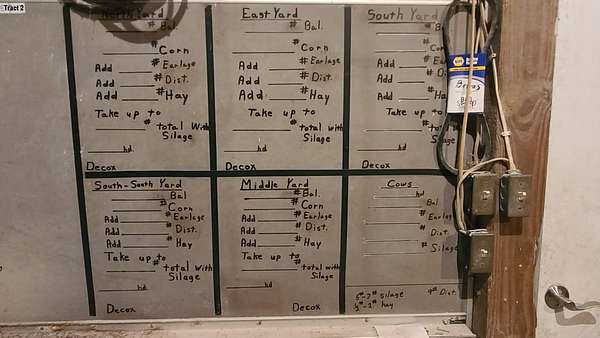 Tract 2
North Yard
# Bal.
# Corn
Add # Earlage
Add # Dist.
Add # Hay
Take up to
# total with
Silage
hd
Decox
East Yard
# Bal.
# Corn
Add # Earlage
Add # Dist.
Add # Hay
Take up to
# total with
Silage
hd
Decox
South Yard
# B
Corn
Add # Earlage
Add # Dist.
Add Hay
Take up to
# tot
Silage
hd
Decox
South-South Yard
# Bal
# Corn
Add # Earlage
Add # Dist.
Add # Hay
Take up to
# total with
Silage
hd
Decox
Middle Yard
# Bal.
# Corn
Add # Earlage
Add # Dist.
Add # Hay
Take up to
# total with
Silage
hd
Decox
Cows
hd
# Bal
# Earlag
# Dist.
# Silage
Silage
Dist
hay
NAPA